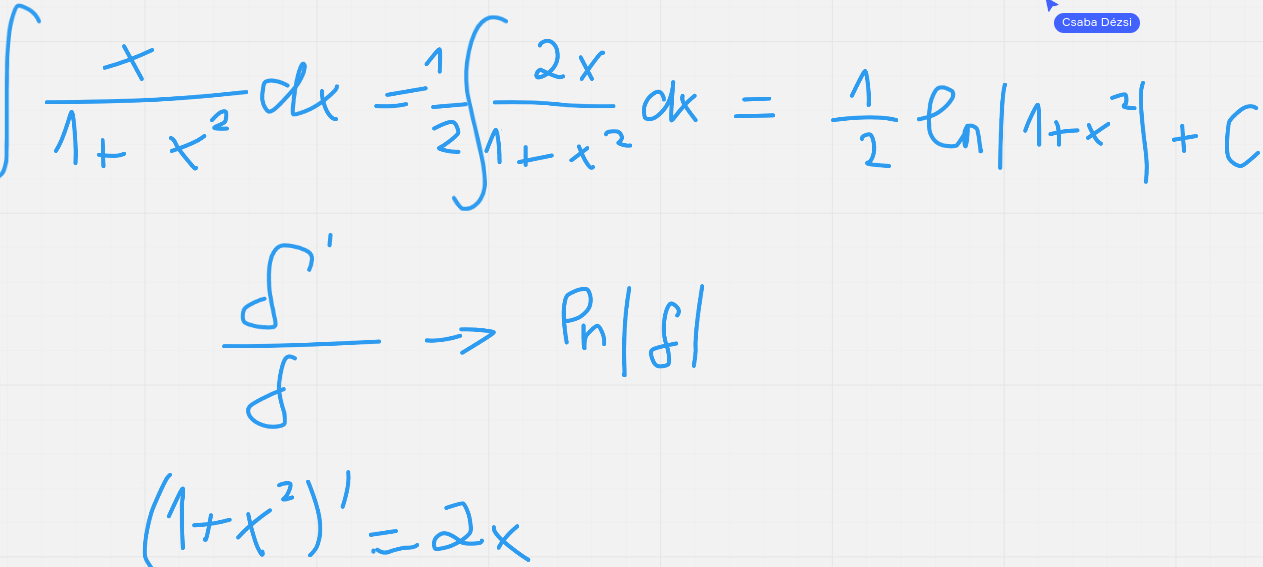 Csaba Dézsi
∫ x/(1 + x²) dx = 1/2 ∫ 2x/(1 + x²) dx = 1/2 ln|1+x²| + C
f'/f → ln|f|
(1+x²)' = 2x